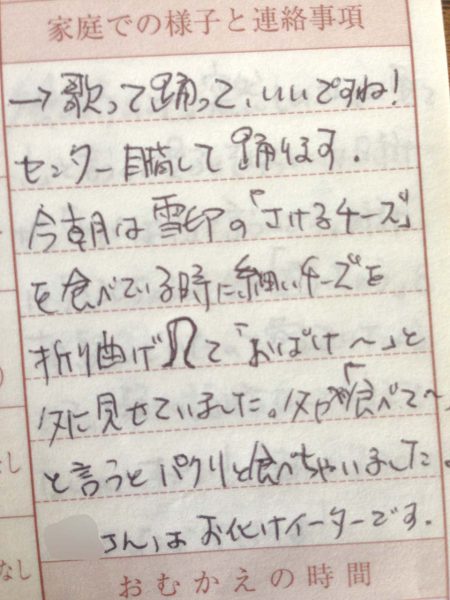 家庭での様子と連絡事項
→歌って踊って、いいですね!
センター目指して踊ります.
今朝は雪印の「さけるチーズ」
を食べている時に細いチーズを
折り曲げΩて「おばけ〜」と
父に見せていました。父が「食べて〜」
と言うとパクリと食べちゃいました.
さんはお化けイーターです.
なし
おむかえの時間